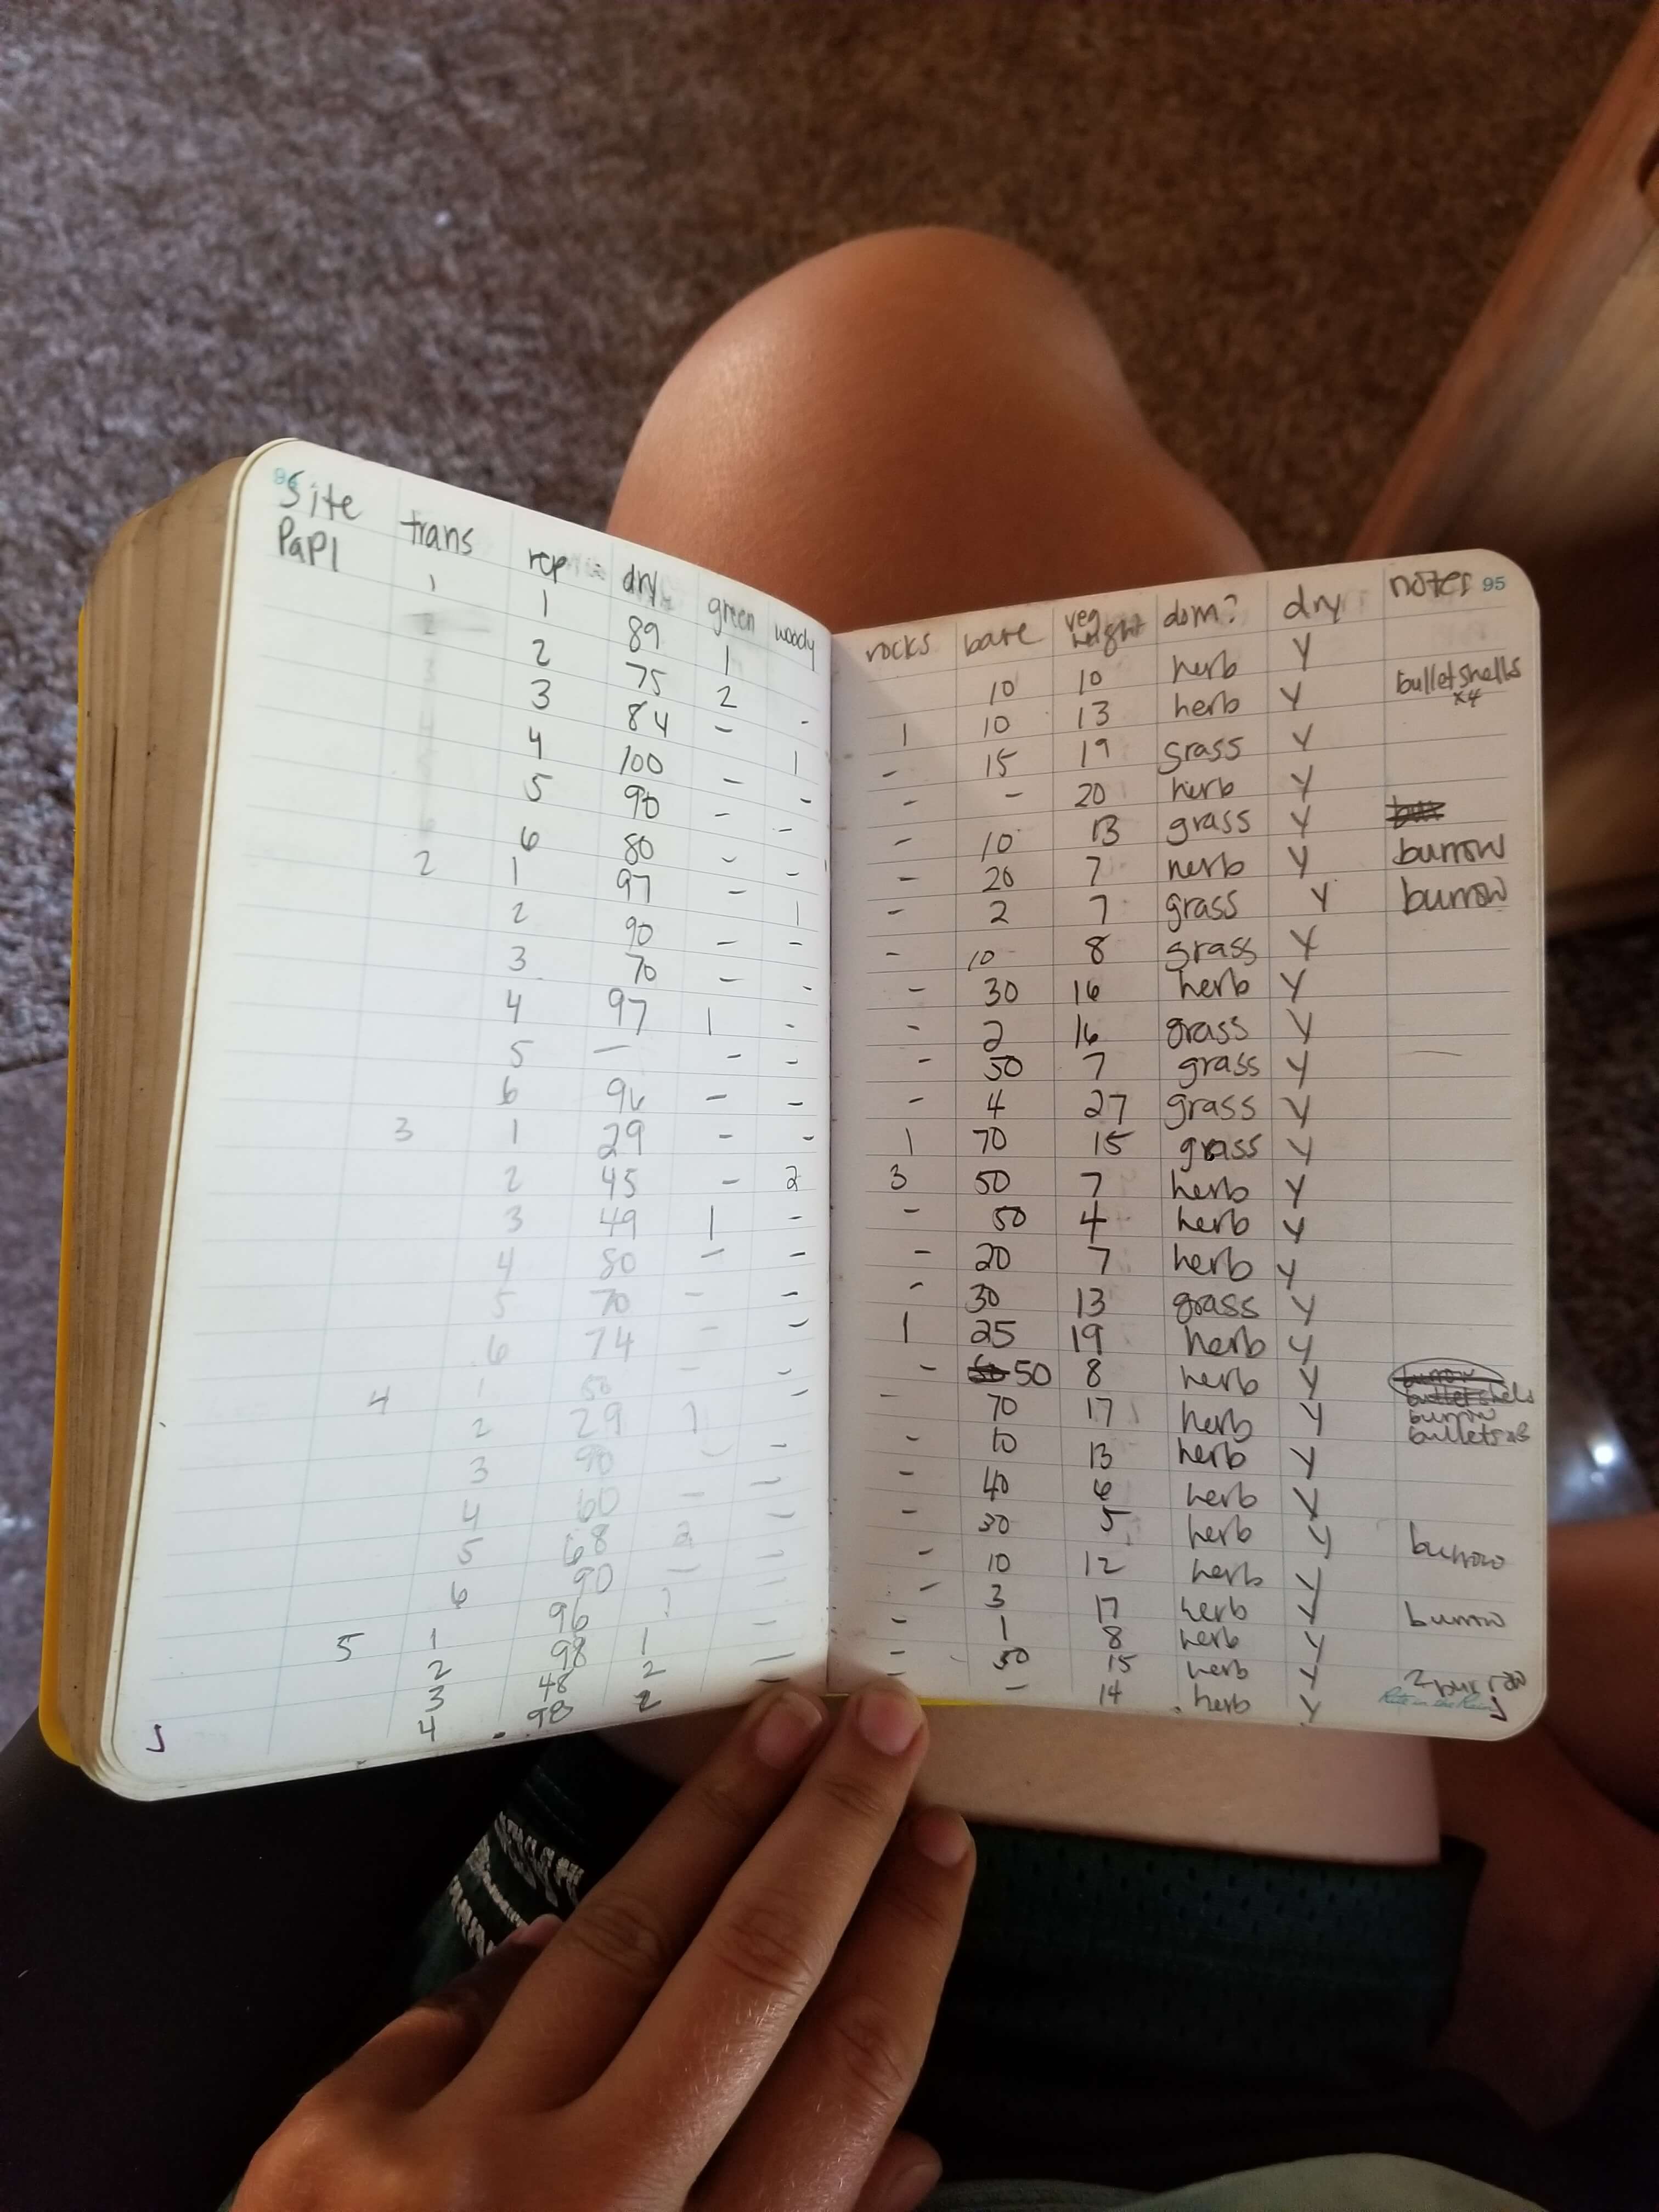 96
Site trans rep dry green woody
PaP1
1 1 89 1
2 75 2 -
3 84 - 1
4 100 - -
5 90 - -
6 80 - -
2 1 97 - 1
2 90 - -
3 70 - -
4 97 1 -
5 — - -
6 96 - -
3 1 29 - -
2 45 - 2
3 49 1 -
4 80 - -
5 70 - -
6 74 - -
4 1 50 - -
2 29 1
3 90 - -
4 60 - -
5 68 2 -
6 90 - -
5 1 96 1 -
2 98 1 -
3 48 2 -
4 98 2 -
rocks bare veg height dom? dry notes 95
10 10 herb y
1 10 13 herb y bullet shells x4
- 15 19 grass y
- - 20 herb y
- 10 13 grass y
- 20 7 herb y burrow
- 2 7 grass y burrow
- 10 8 grass y
- 30 16 herb y
- 2 16 grass y
- 50 7 grass y
- 4 27 grass y
1 70 15 grass y
3 50 7 herb y
- 50 4 herb y
- 20 7 herb y
- 30 13 grass y
1 25 19 herb y
- 50 8 herb y burrow
- 70 17 herb y bullet shells
burrow
bullets x3
- 10 13 herb y
- 40 6 herb y
- 30 5 herb y burrow
- 10 12 herb y
- 3 17 herb y burrow
- 1 8 herb y
- 50 15 herb y 2 burrow
- - 14 herb y
Rite in the Rain